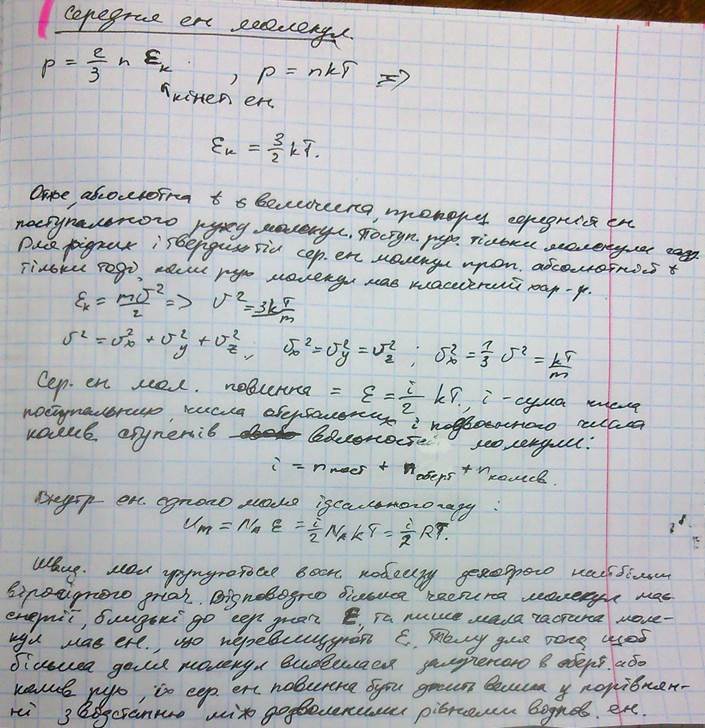 Середня ен молекул.
p = 2/3 n εк , p = nkT =>
кінет. ен.
εк = 3/2 kT.
Отже, абсолютна t є величина, пропорц середній ен
поступального руху молекул. Поступ. рух. тільки молекули газу.
Для рідких і твердих тіл сер. ен молекул проп. абсолютній t
тільки тоді, коли рух молекул має класичний хар-р.
εк = mυ²/2 => υ² = 3kT/m
υ² = υx² + υy² + υz² ; υx² = υy² = υz² ; υx² = 1/3 υ² = kT/m
Сер. ен мол. повинна = ε = i/2 kT, i - сума числа
поступальних, числа обертальних і подвоєного числа
колив. ступенів вольностей молекули:
i = nпост + nоберт + nколив.
Внутр ен. одного моля ідеального газу :
Um = NA ε = i/2 NA kT = i/2 RT.
Швид. мол групуються в осн. поблизу деякого найбільш
вірогідного знач. Відповідно більша частина молекул має
енергії, близькі до сер знач ε, та лише мала частина моле-
кул має ен., що перевищують ε. Тому для того щоб
більша доля молекул виявилася залученою в оберт або
колив рух, їх сер ен повинна бути велика у порівнян-
ні з відстанню між дозволеними рівнями ен.